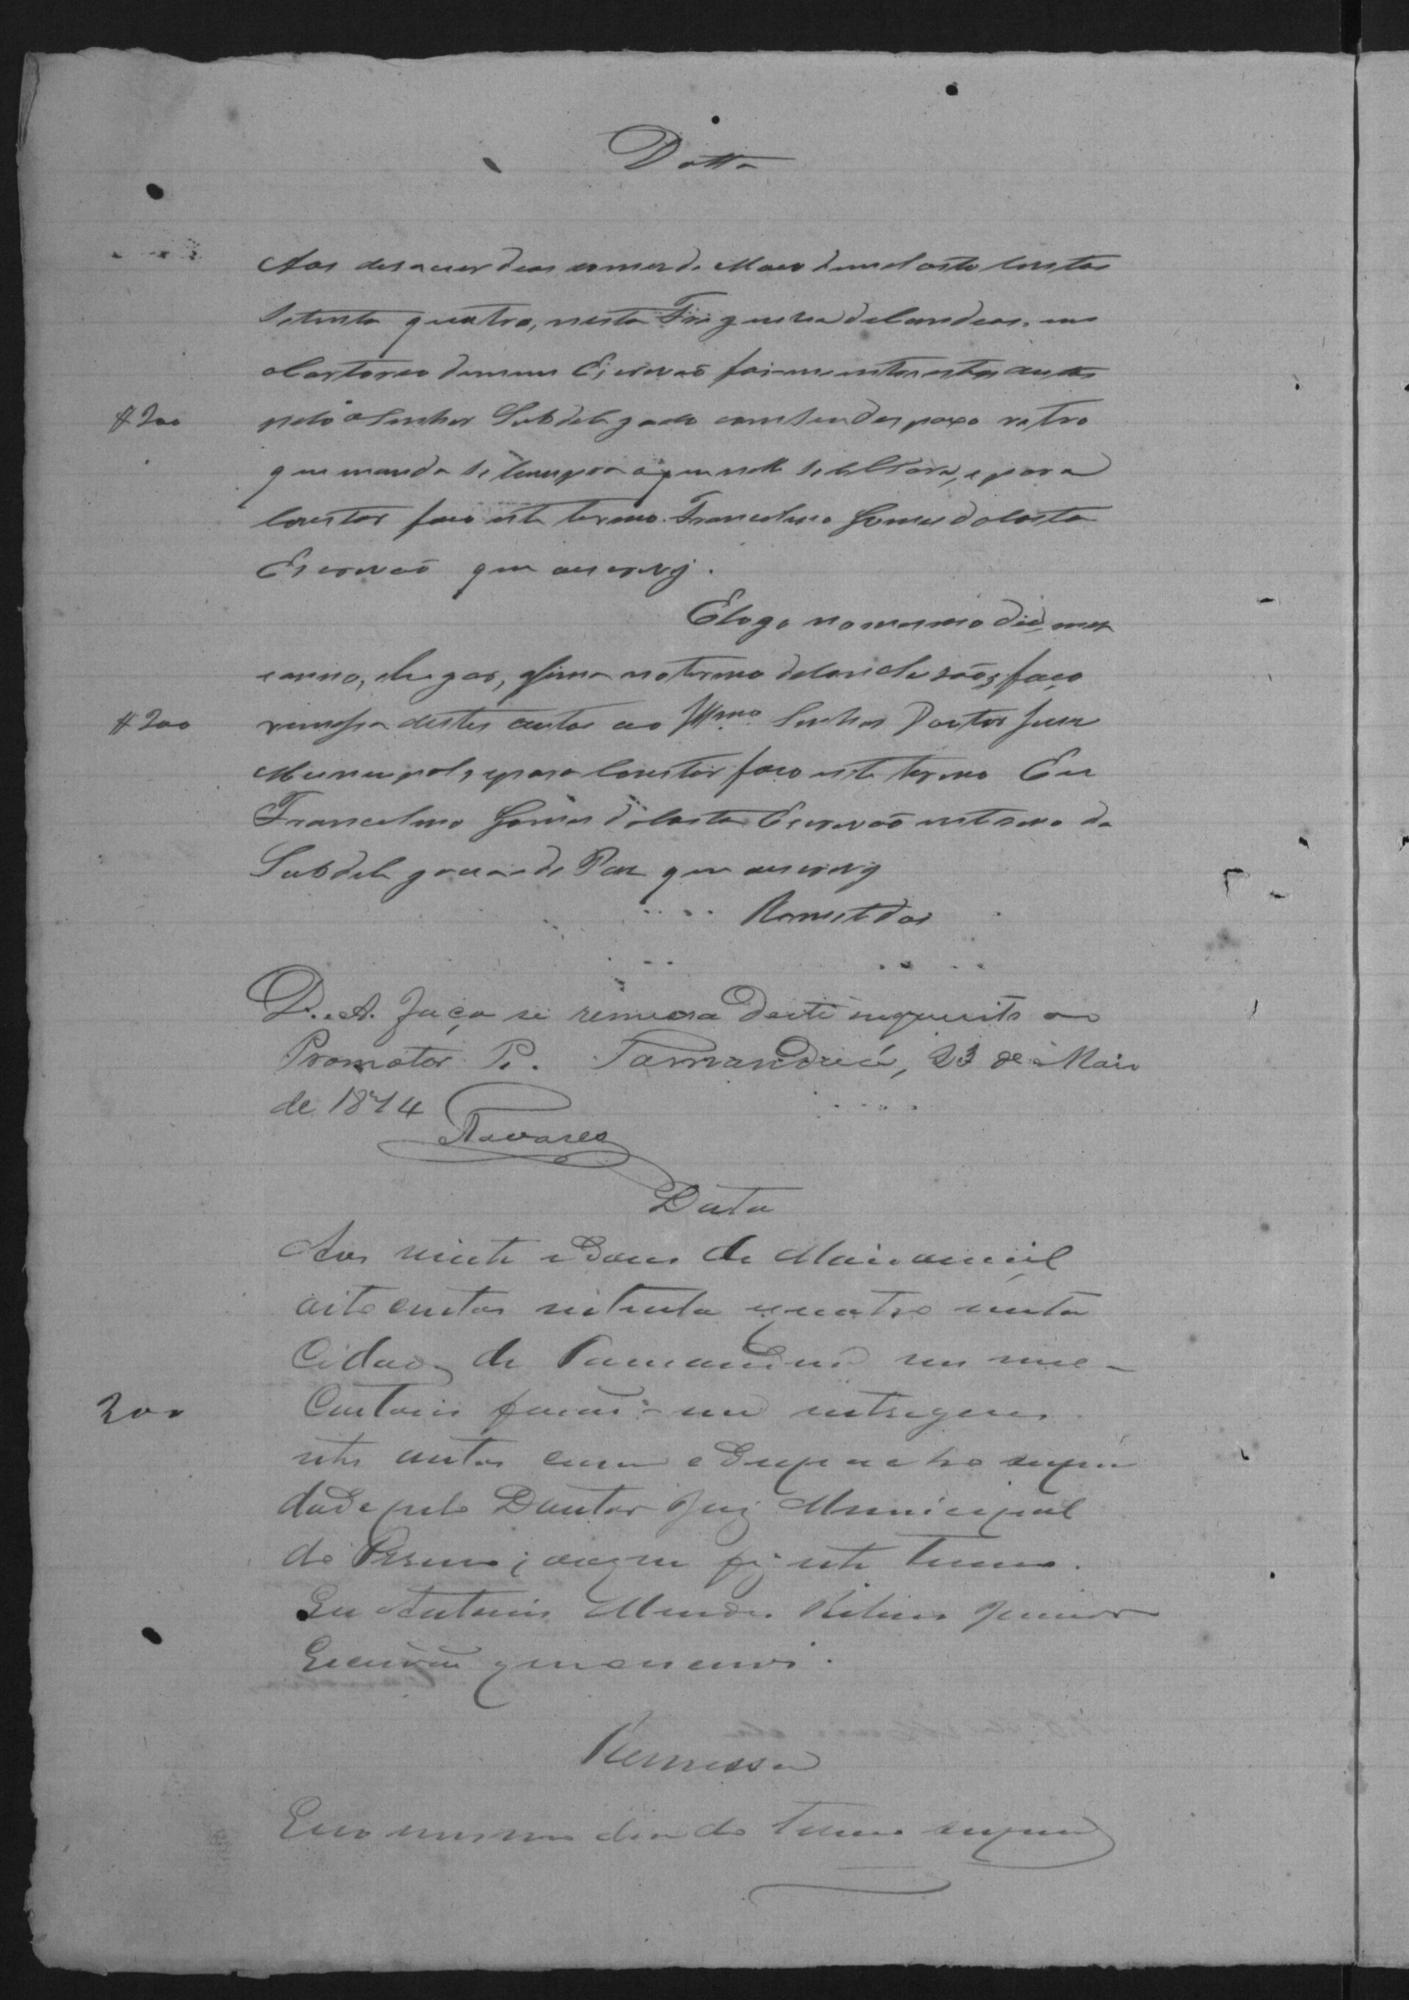 Datta
Aos desanove dias do mes de Maio de mil oito centos
Setenta quatro, nesta Freguesia de em
Cartorio de mim Escrivaõ foi me entre estes autos
#200 pelo o Senhor Subdelegado com seu despaxo retro
que manda se cumpra e para
Constar faço este termo. Francelino Gomes da Costa
Escrivaõ que escrevy.
E logo no mesmo dia, mes
e anno, lugar, no termo de Conclusaõ, faço
#200 remessa destes autos ao Illmo. Senhor Doutor Juiz
Municipal, e para Constar faço este termo Eu
Francelino Gomes da Costa Escrivaõ interino da
Subdelegacia de Paz que escrevy
Remettidos
D. e A. Faça se remessa deste inquerito ao
Promotor P. Tamanduá, 23 de Maio
de 1874
Tavares
Data
Aos vinte e de Maio de mil
oito centos setenta quatro nesta
Cidade de Tamanduá em meu
Cartorio foraõ-me entregues
200 estes autos com o Despacho supra
dado pelo Doutor Juiz Municipal
do Termo; do que fiz este termo.
Eu Antonio Mendes Ribeiro Junior
Escrivaõ que escrevi.
Remessa
E no mesmo dia do termo supra